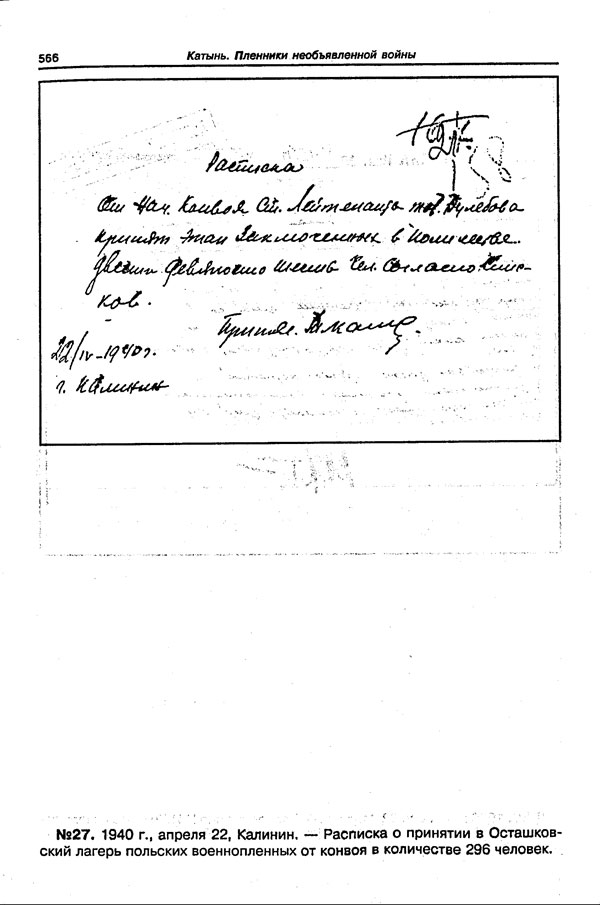 566
Катынь. Пленники необъявленной войны
Расписка
От Нач. Конвоя Ст. Лейтенанта тов.
принят Этап Заключенных в Количестве
Двести Девяносто шесть Чел. Согласно Спис-
ков.
Принял.
22/IV-1940г.
г. Калинин
№27. 1940 г., апреля 22, Калинин. — Расписка о принятии в Осташков-
ский лагерь польских военнопленных от конвоя в количестве 296 человек.